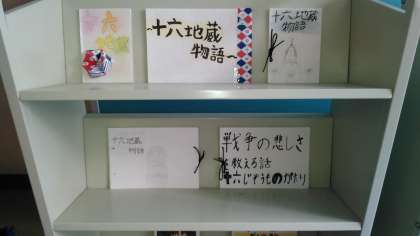 寿
~十六地蔵
物語~
十六地蔵
物語
十六地蔵
物語
戦争の悲しさ
教える話
十六じぞうものがたり